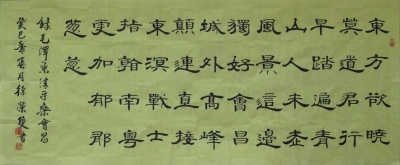 東方欲曉
莫道君行
早踏遍青
山人未老
風景這邊
獨好會昌
城外高峰
顛連直接
東溟戰士
指看南粤
更加郁郁
葱葱
錄毛澤東清平樂會昌
癸巳年月徐榮書